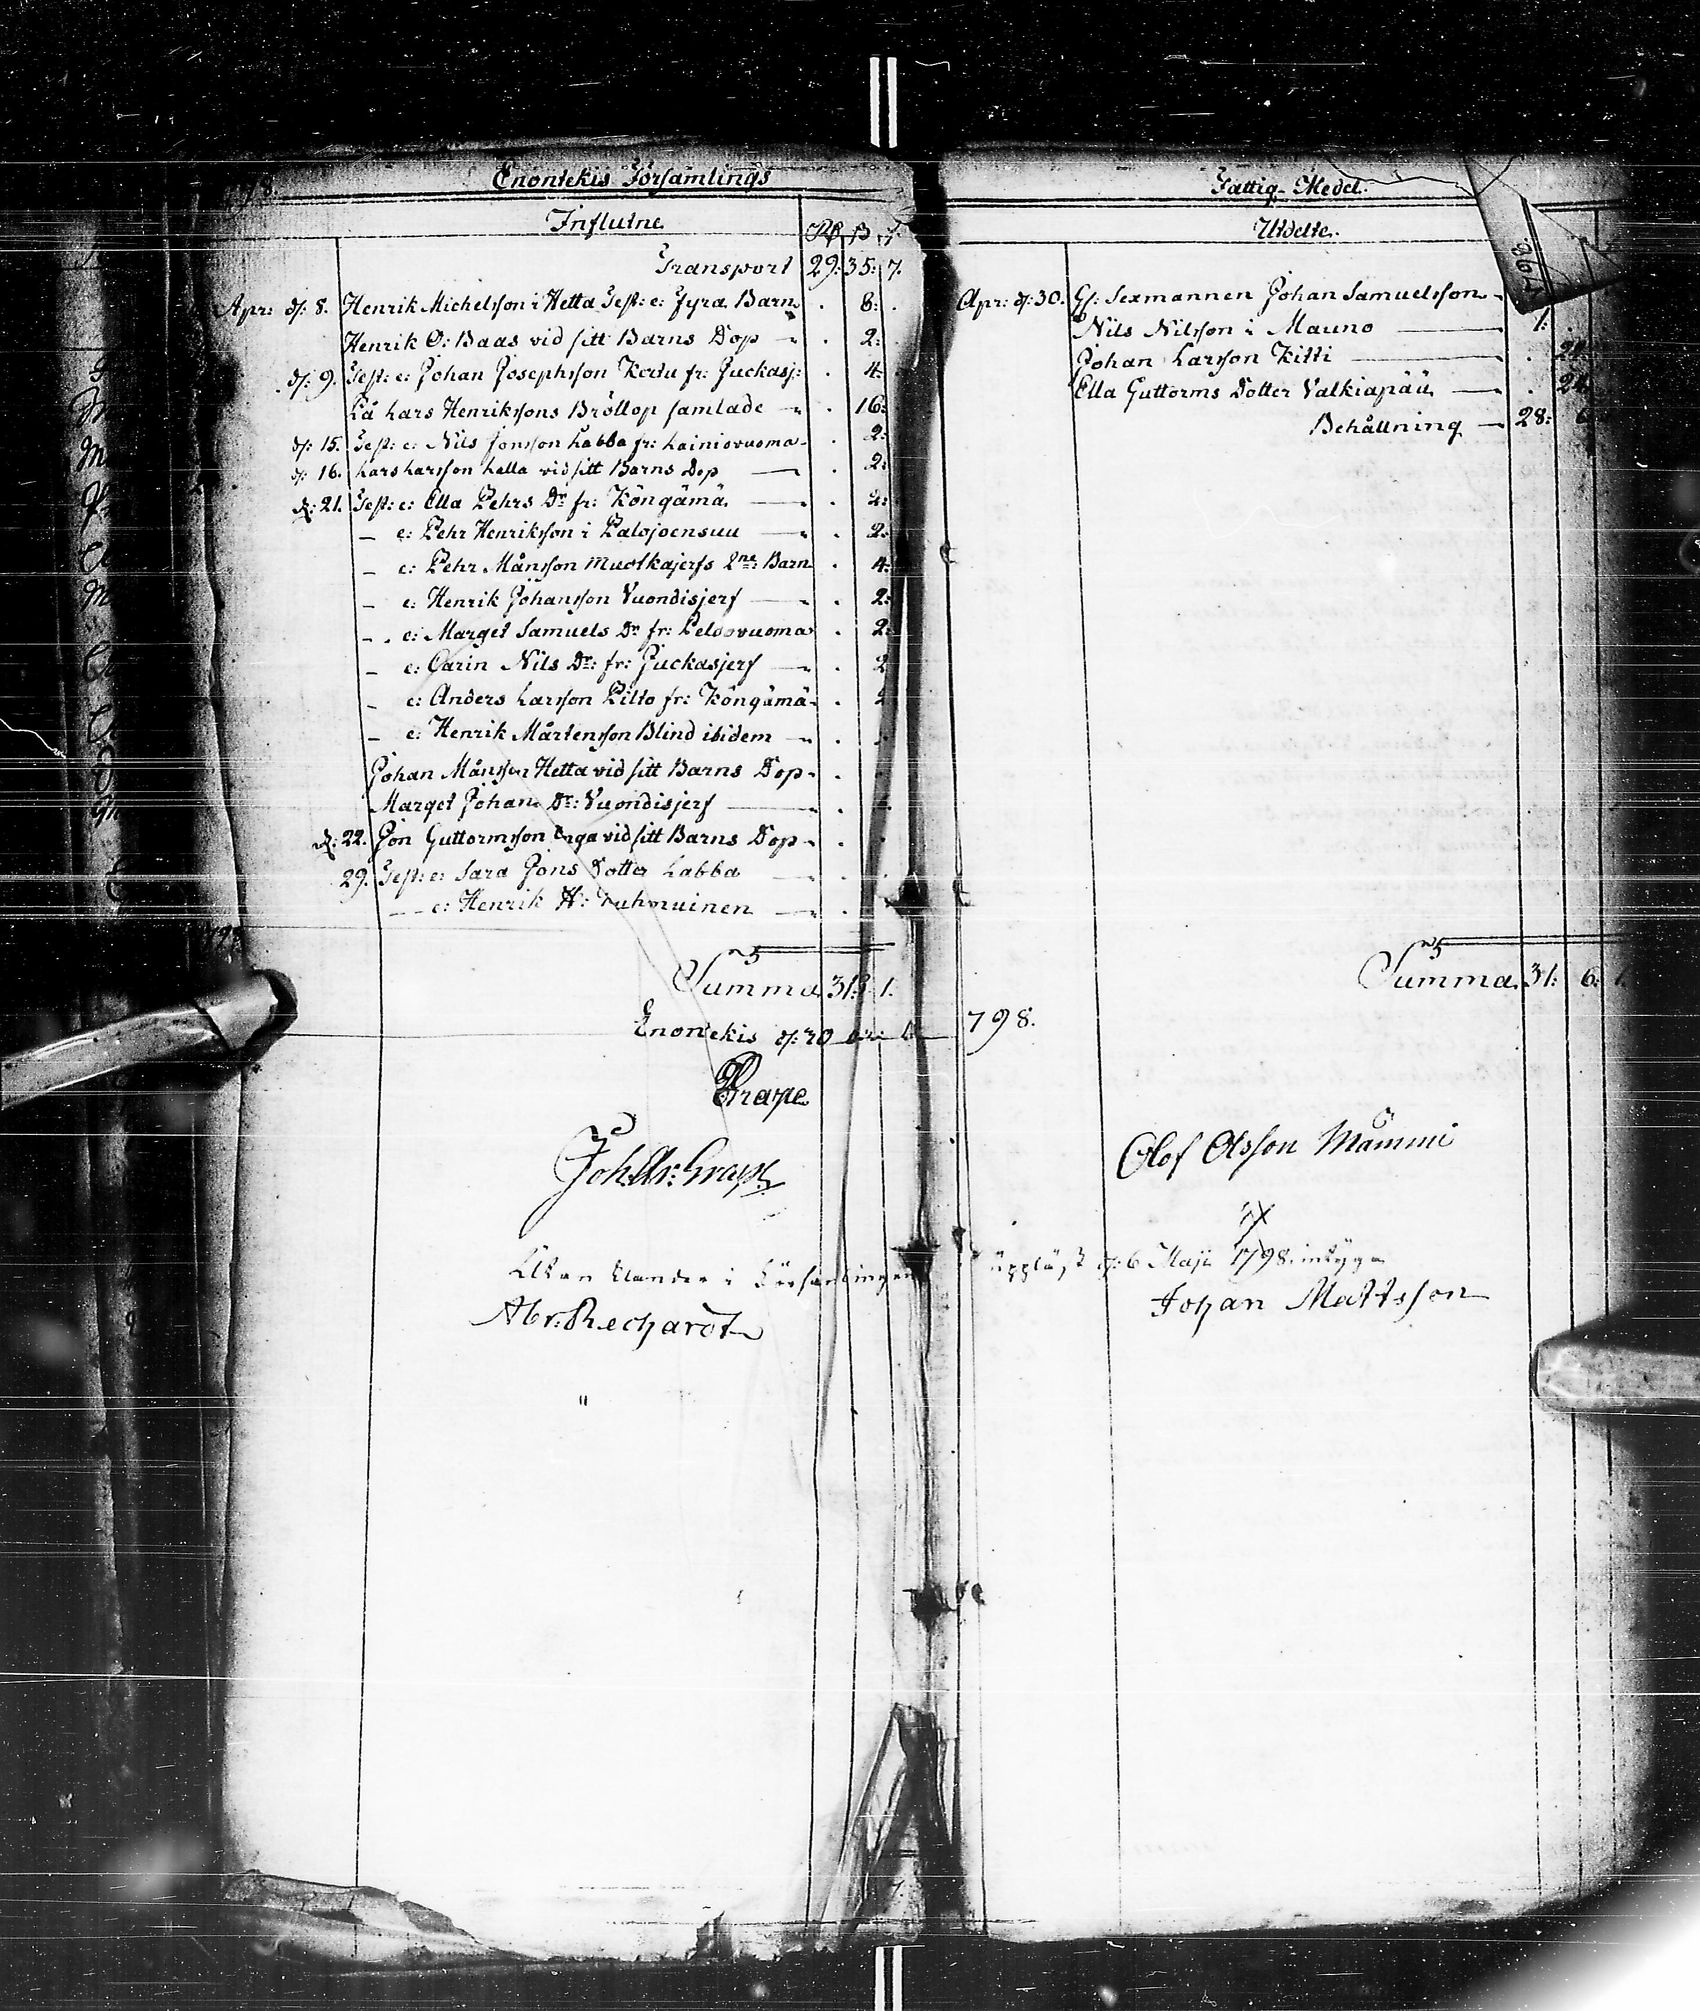 Enontekis Församlings
Influtne Rd ß r.
Transport 29: 35: 7.
Apr: d: 8. Henrik Michelsson i Hetta Test: e: fyra Barn . 8: .
Henrik O: Baas vid sitt Barns Dop — . 2:
d: 9. Test: e: Johan Josephsson Kertu fr: Juckasj: . 4:
På Lars Henrikssons Bröllop samlade — . 16:
d: 15. Test: e: Nils Jonsson Labba fr: Lainiovuoma . 2:
d: 16. Lars Larsson Lalla vid sitt Barns Dop — . 2:
d: 21. Test: e: Ella Pehrs Dr fr: Köngämä — . 2:
— e: Pehr Henriksson i Palojoensuu — . 2:
— e: Pehr Månsson Muotkajerfs 2ne: Barn . 4:
— e: Henrik Johansson Vuondisjerf — . 2:
— e: Marget Samuels Dr fr: Peldovuoma . 2:
— e: Carin Nils Dr: fr: Juckasjerf — . 2
— e: Anders Larsson Pilto fr: Köngämä . 2
— e: Henrik Mårtensson Blind ibidem — .
Johan Månsson Hetta vid sitt Barns Dop .
Marget Johans Dr: Vuondisjerf — .
d: 22. Jon Guttormsson vid sitt Barns Dop .
29. Test: e: Sara Jons Dotter Labba — .
— e: Henrik H: — .
Summa 31: 1.
Enontekis d: 30
Grape
Joh: Grape
i Församlingen
Abr: Rechardt
Fattig-Medel.
Utdelte.
1798
Apr: d: 30. Gf: Sexmannen Johan Samuelsson
Nils Nilsson i Mauno — 1:
Johan Larsson Kitti — . 24
Ella Guttorms Dotter Valkiapää — . 24
Behållning — 28: 6
Summa 31: 6: 1.
798.
Olof Olsson Mämmi
uppläst d: 6 Maji 1798. intyga
Johan Mattsson